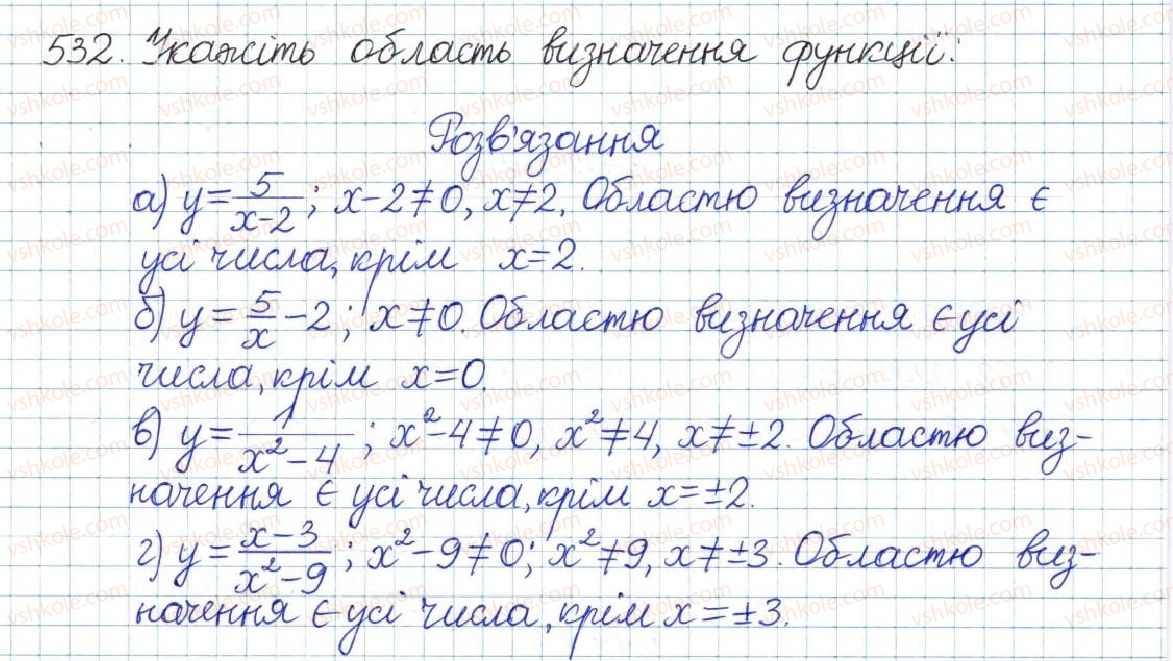 532. Укажіть область визначення функції:
Розв'язання
а) y=5/(x-2); x-2≠0, x≠2. Областю визначення є
усі числа, крім x=2.
б) y=5/x-2; x≠0. Областю визначення є усі
числа, крім x=0.
в) y=1/(x²-4); x²-4≠0, x²≠4, x≠±2. Областю виз-
начення є усі числа, крім x=±2.
г) y=(x-3)/(x²-9); x²-9≠0; x²≠9, x≠±3. Областю виз-
начення є усі числа, крім x=±3.